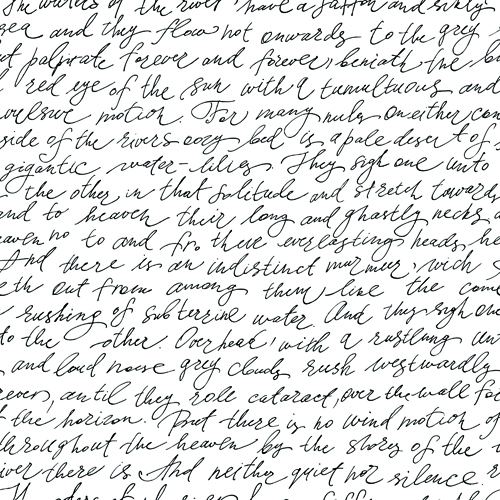 The waters of the river have a saffron and sickly
sea and they flow not onwards to the grey
palpirate forever and forever, beneath the
red eye of the sun with a tumultuous and
motion. For many miles on either
side of the rivers oozy bed is a pale desert of
gigantic water-lilies. They sigh one unto
the other in that solitude and stretch towards
and to heaven their long and ghastly necks
heaven no to and fro there everlasting heads, he
And there is an indistinct murmur, wich
eth out from among them line the come
rushing of subterrine water. And they sigh one
to the other. Overhead, with a rustlung
and loud noise grey clouds rush westwardly
rever, until they role cataract, over the wall
the horizon. But there is no wind motion of
throughout the heaven by the shores of the
river there is And neither quiet nor silence